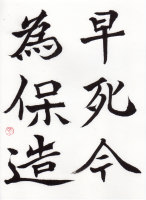 早死今
為保造